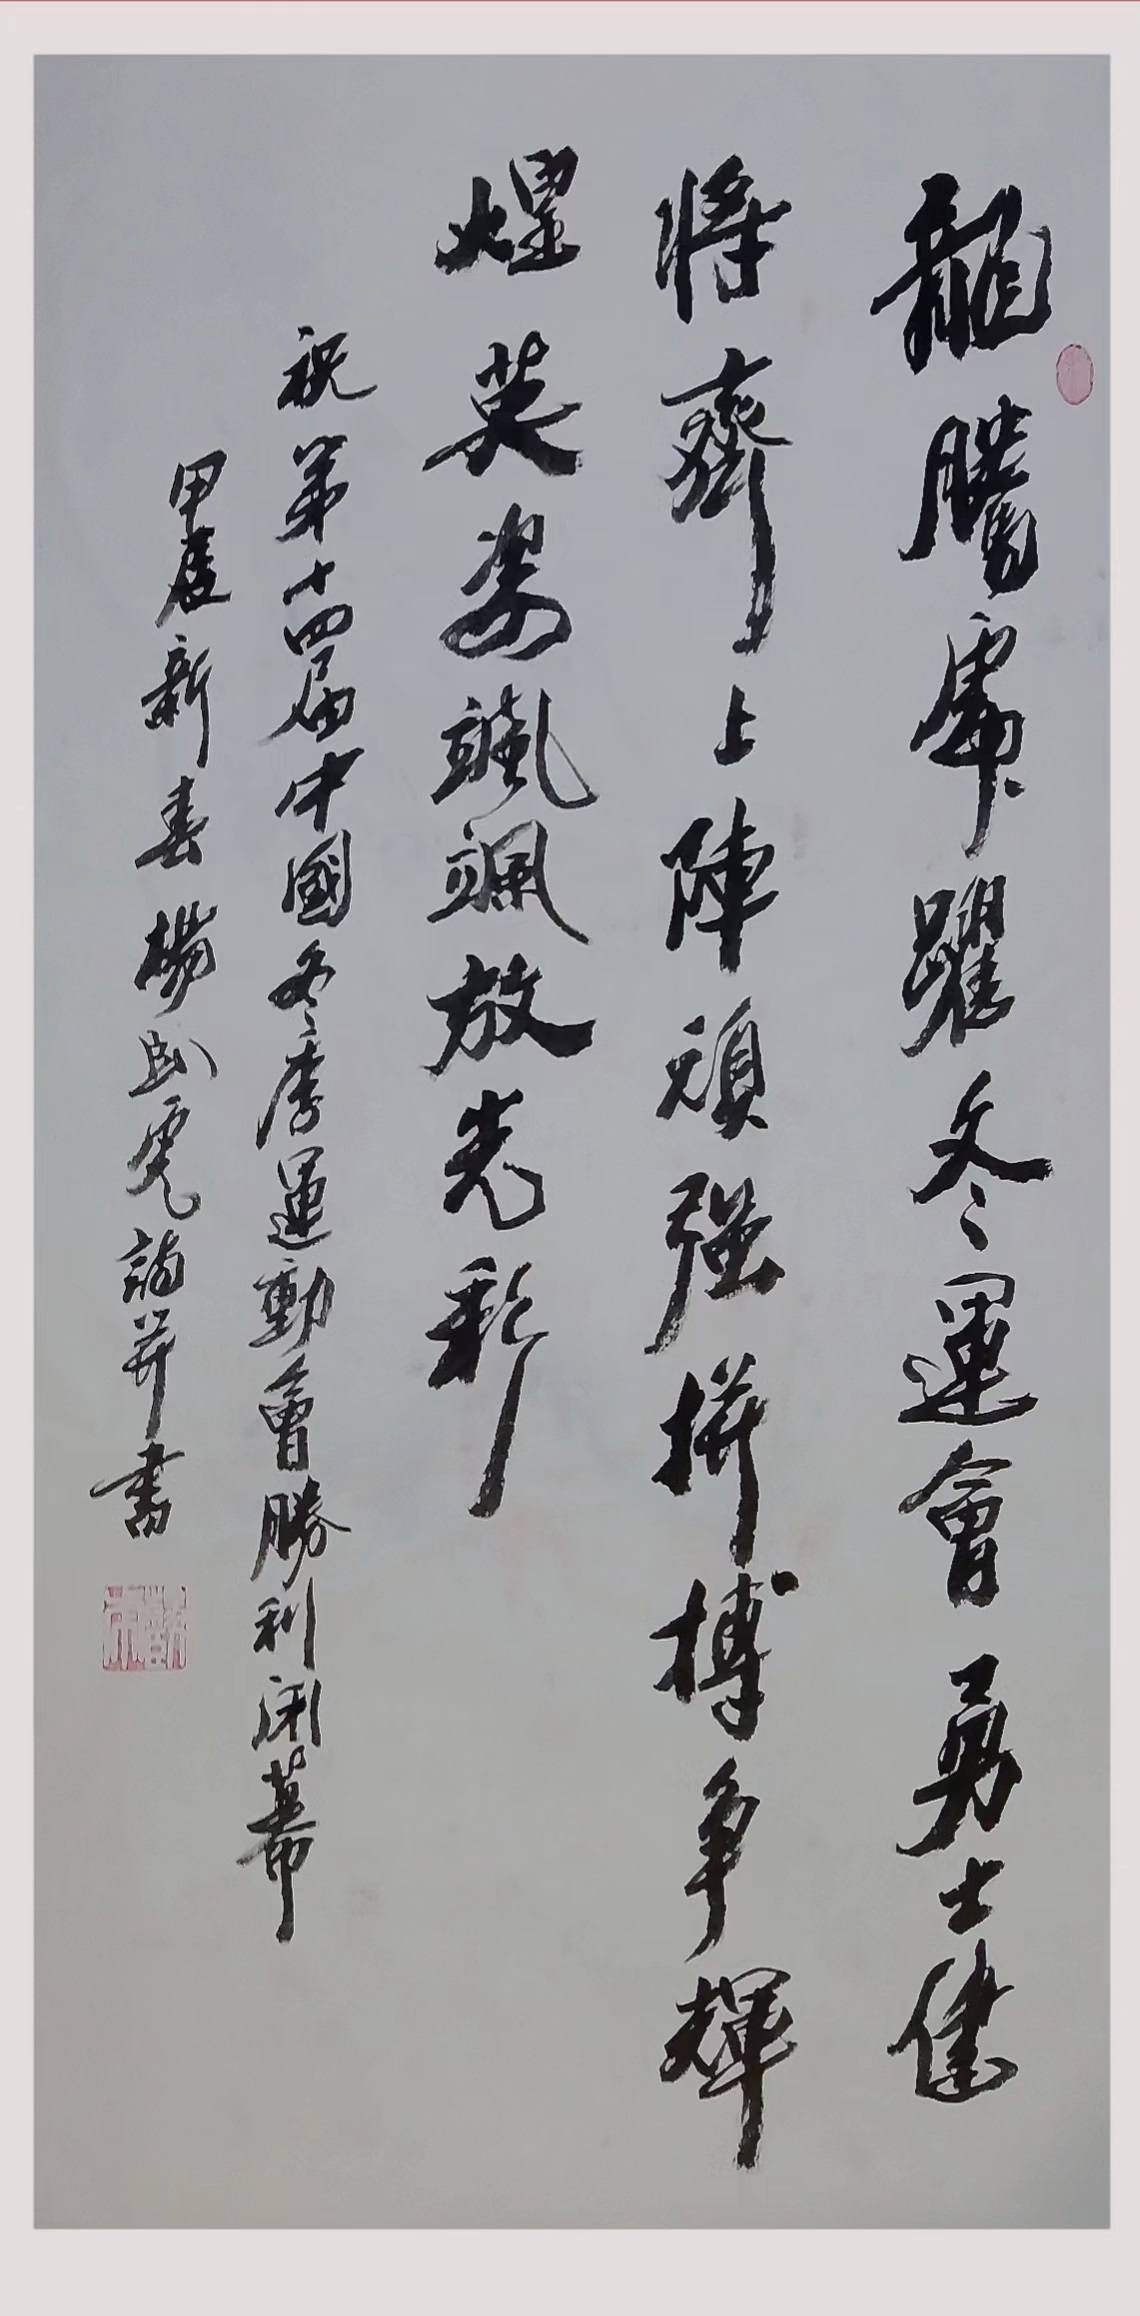 龍騰虎躍冬運會勇士健
將齊上陣頑强拼搏争輝
煌英姿颯颯放光彩
祝第十四届中國冬季運動會勝利闭幕
甲辰新春楊虎詩并書